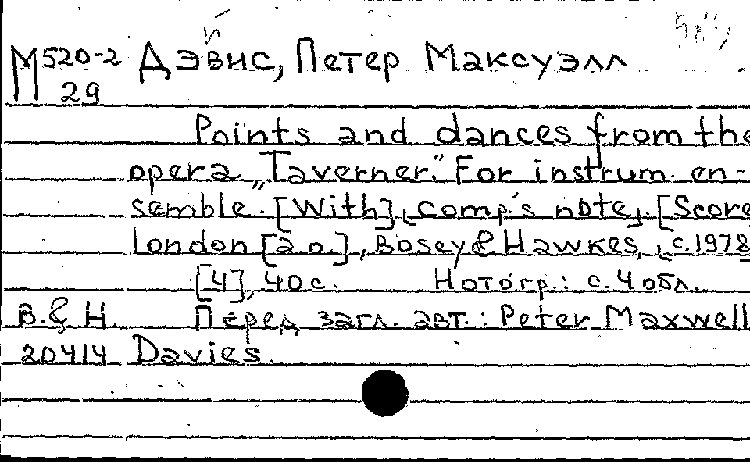 М520-2 Дэвис, Петер Максуэлл
29
Points and dances from the
opera „Taverner." For instrum. en-
semble. [With] comp's note. [Score
London [a.o.], Bosey & Hawkes, c.1978
[4], 40 с. Нотогр.: с. 4 обл.
B. & H. Перед загл. авт.: Peter Maxwell
20414 Davies.